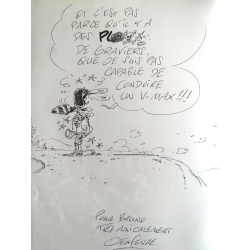 ET C'EST PAS
PARCE QU'IL Y A
DES
DE GRAVIERS,
QUE JE SUIS PAS
CAPABLE DE
CONDUIRE
UN V-MAX!!!
POUR BRUNO
TRÈS AMICALEMENT